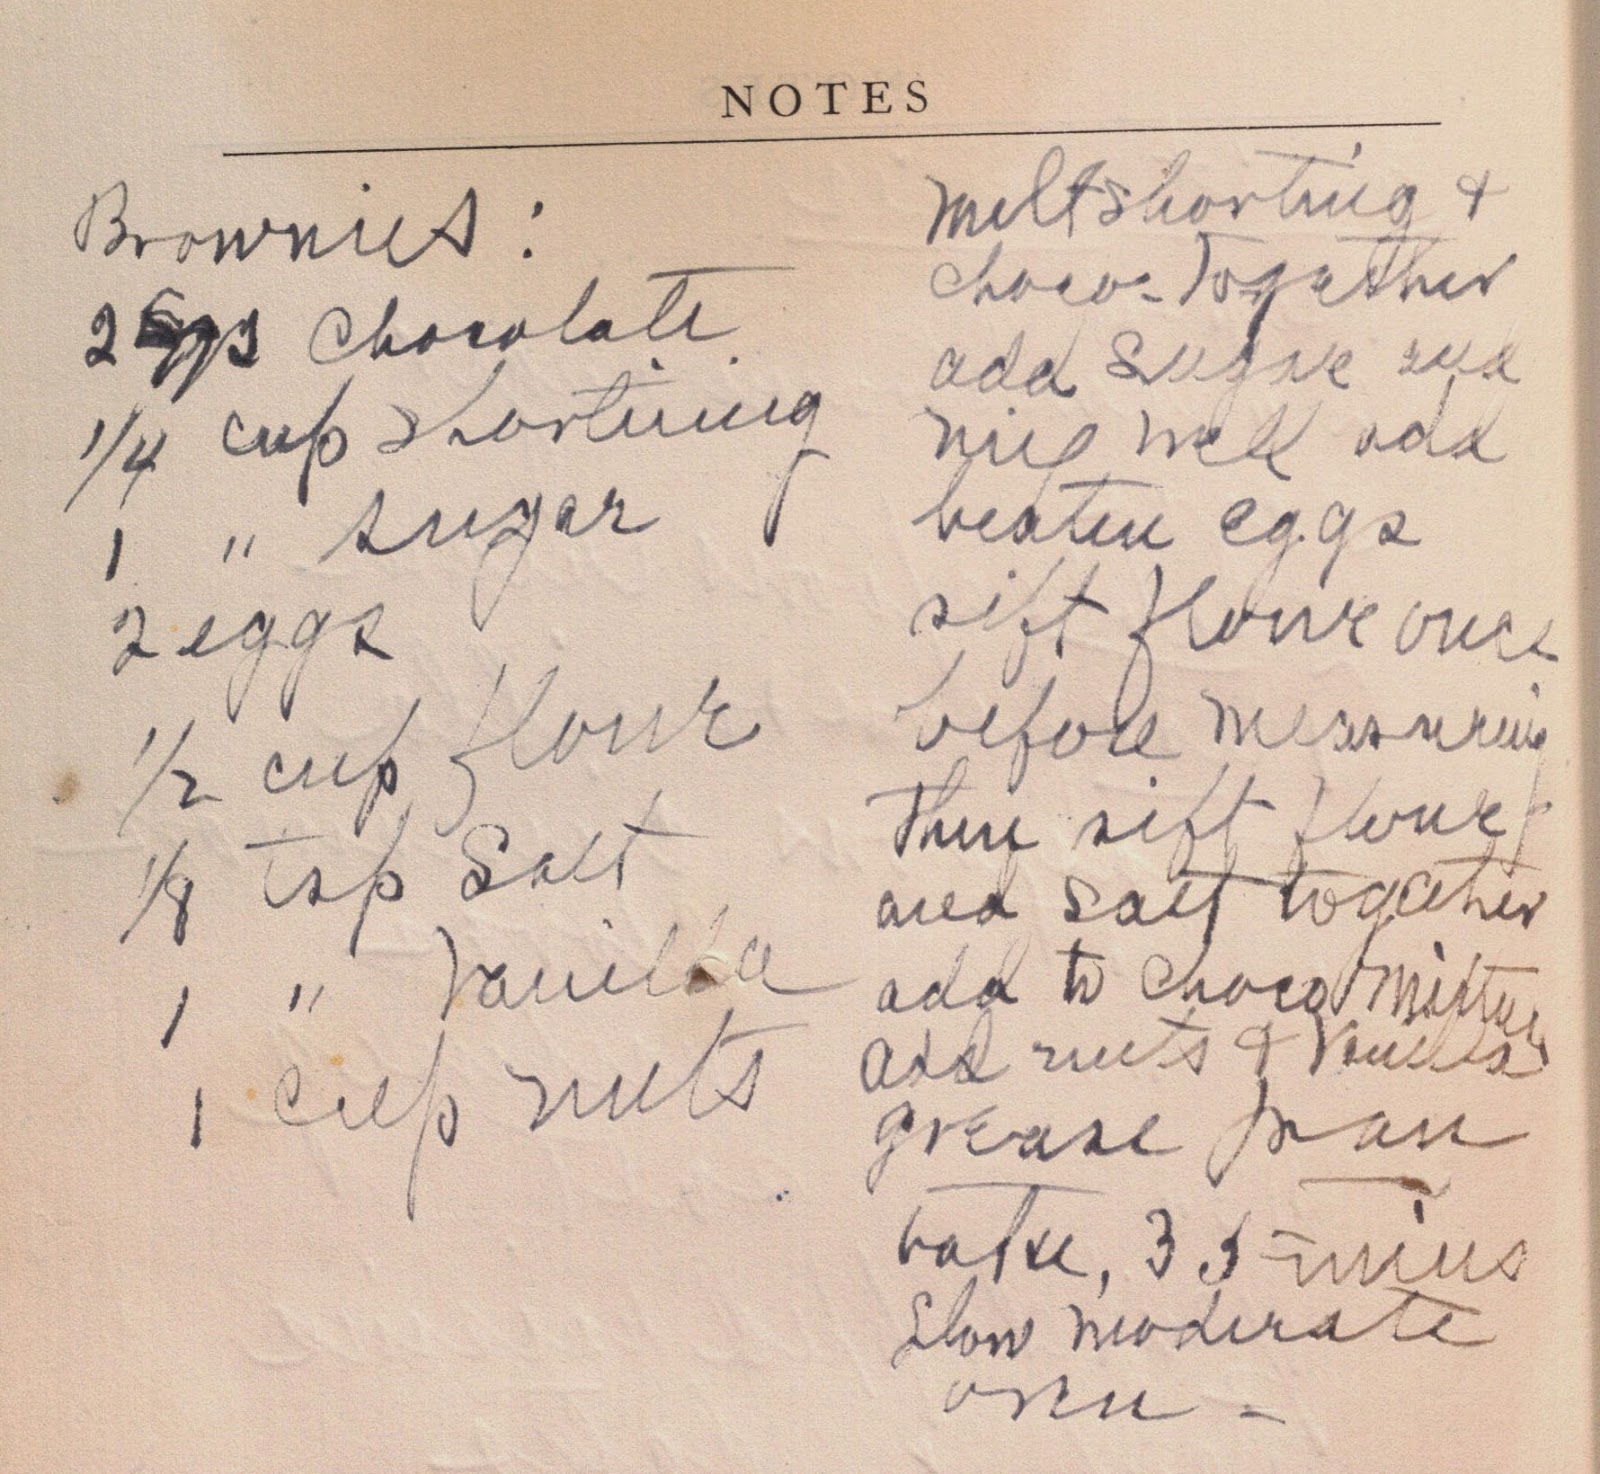 NOTES
Brownies :
2 sqs chocolate
1/4 cup shortining
1 " sugar
2 eggs
1/2 cup flour
1/8 tsp salt
1 " Vanilla
1 cup nuts
Melt shorting &
choco- Together
add sugar and
mix well add
beaten eggs
sift flour once
before measuring
Then sift flour
and salt together
add to choco Mixture
add nuts & Vanilla
grease pan
bake, 35 - mins
Slow moderate
oven -